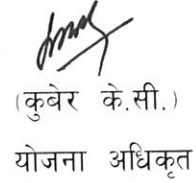 (कुबेर के.सी.)
योजना अधिकृत